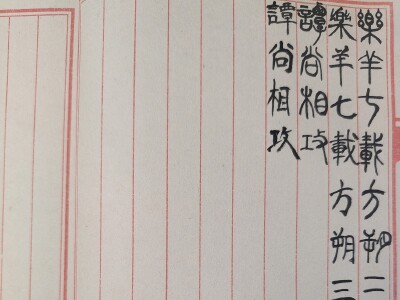 樂羊七載方朔三
樂羊七載方朔三
譚尚相攻
譚尚相攻